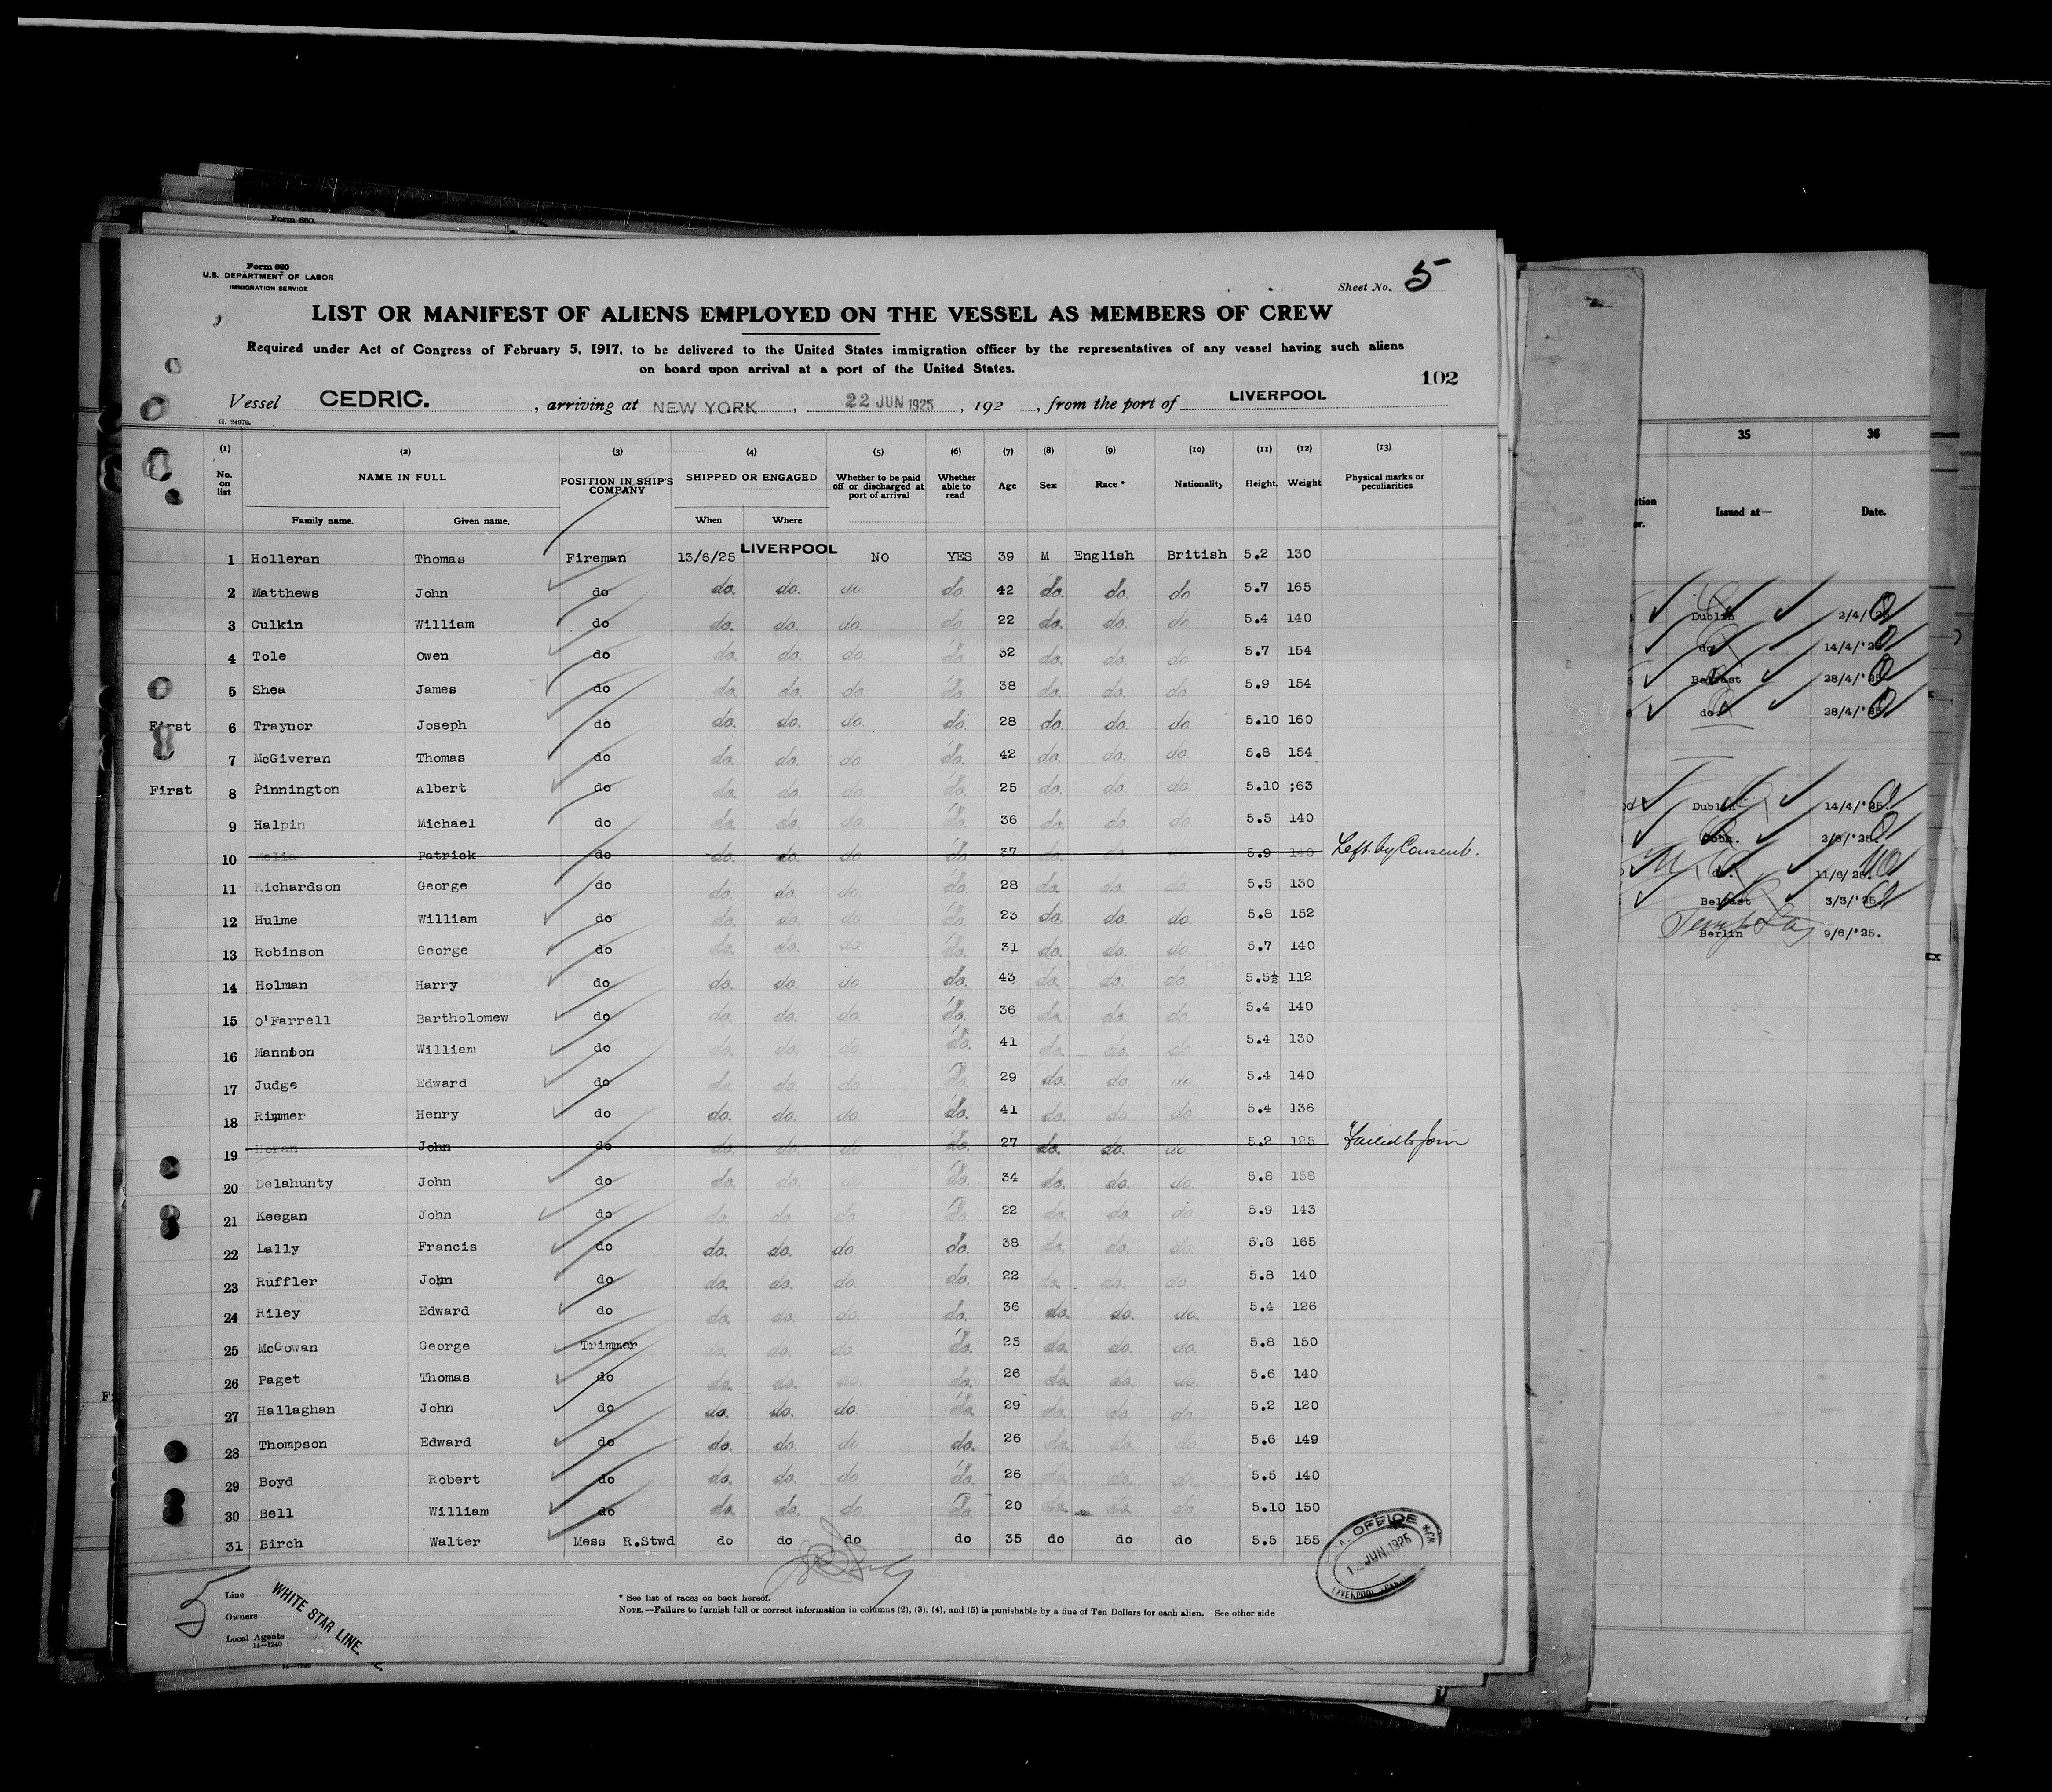 Form 680.
Form 680
U.S. DEPARTMENT OF LABOR
IMMIGRATION SERVICE
Sheet No. 5
LIST OR MANIFEST OF ALIENS EMPLOYED ON THE VESSEL AS MEMBERS OF CREW
Required under Act of Congress of February 5, 1917, to be delivered to the United States immigration officer by the representatives of any vessel having such aliens
on board upon arrival at a port of the United States.
102
Vessel CEDRIC. , arriving at NEW YORK , 22 JUN 1925 , 192 , from the port of LIVERPOOL
G. 24979.
(1) (2) (3) (4) (5) (6) (7) (8) (9) (10) (11) (12) (13)
No. on list NAME IN FULL POSITION IN SHIP'S COMPANY SHIPPED OR ENGAGED Whether to be paid off or discharged at port of arrival Whether able to read Age Sex Race * Nationality Height Weight Physical marks or peculiarities
Family name. Given name. When Where
1 Holleran Thomas Fireman 13/6/25 LIVERPOOL NO YES 39 M English British 5.2 130
2 Matthews John do do. do. do. do. 42 do. do. do 5.7 165
3 Culkin William do do. do. do. do. 22 do. do. do 5.4 140
4 Tole Owen do do. do. do. do. 32 do. do. do 5.7 154
5 Shea James do do. do. do. do. 38 do. do. do 5.9 154
First 6 Traynor Joseph do do. do. do. do. 28 do. do. do 5.10 160
7 McGiveran Thomas do do. do. do. do. 42 do. do. do. 5.8 154
First 8 Pinnington Albert do do. do. do. do. 25 do. do. do. 5.10 ;63
9 Halpin Michael do do. do. do. do. 36 do. do. do. 5.5 140
10 Melia Patrick do do. do. do. do. 37 do. do. do. 5.9 140 Left by Consent.
11 Richardson George do do. do. do. do. 28 do. do. do. 5.5 130
12 Hulme William do do. do. do. do. 23 do. do. do. 5.8 152
13 Robinson George do do. do. do. do. 31 do. do. do. 5.7 140
14 Holman Harry do do. do. do. do. 43 do. do. do. 5.5½ 112
15 O'Farrell Bartholomew do do. do. do. do. 36 do. do. do. 5.4 140
16 Mannion William do do. do. do. do. 41 do. do. do. 5.4 130
17 Judge Edward do do. do. do. do. 29 do. do. do. 5.4 140
18 Rimmer Henry do do. do. do. do. 41 do. do. do. 5.4 136
19 Horan John do do. do. do. do. 27 do. do. do. 5.2 125 Failed to join
20 Delahunty John do do. do. do. do. 34 do. do. do. 5.8 158
21 Keegan John do do. do. do. do. 22 do. do. do. 5.9 143
22 Lally Francis do do. do. do. do. 38 do. do. do. 5.8 165
23 Ruffler John do do. do. do. do. 22 do. do. do. 5.8 140
24 Riley Edward do do. do. do. do. 36 do. do. do. 5.4 126
25 McGowan George Trimmer do. do. do. do. 25 do. do. do. 5.8 150
26 Paget Thomas do do. do. do. do. 26 do. do. do. 5.6 140
27 Hallaghan John do do. do. do. do. 29 do. do. do. 5.2 120
28 Thompson Edward do do. do. do. do. 26 do. do. do. 5.6 149
29 Boyd Robert do do. do. do. do. 26 do. do. do. 5.5 140
30 Bell William do do. do. do. do. 20 do. do. do. 5.10 150
31 Birch Walter Mess R.Stwd do do do do 35 do do do 5.5 155
Line WHITE STAR LINE.
Owners
Local Agents
14—1240
14—1240
* See list of races on back hereof.
NOTE.—Failure to furnish full or correct information in columns (2), (3), (4), and (5) is punishable by a fine of Ten Dollars for each alien. See other side
OFFICE
JUN. 1925
LIVERPOOL
35 36
Issued at— Date.
Dublin 2/4/
do 14/4/'25
Belfast 28/4/'25
do. 28/4/'25
Dublin 14/4/'25.
Cobh. 2/6/'25.
do. 11/6/25.
Belfast 3/3/'25.
Berlin 9/6/'25.